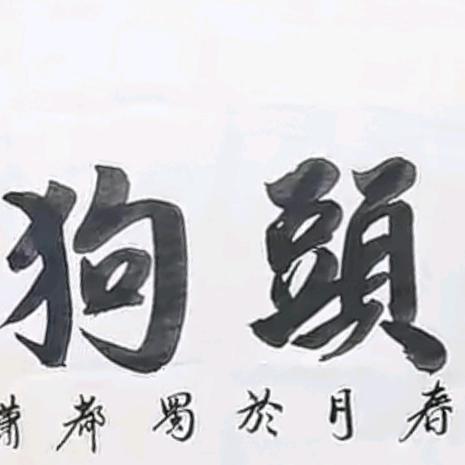 頭狗
春月於蜀都蕭